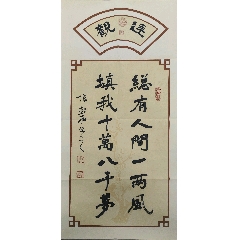 達觀
總有人間一兩風
填我十萬八千夢